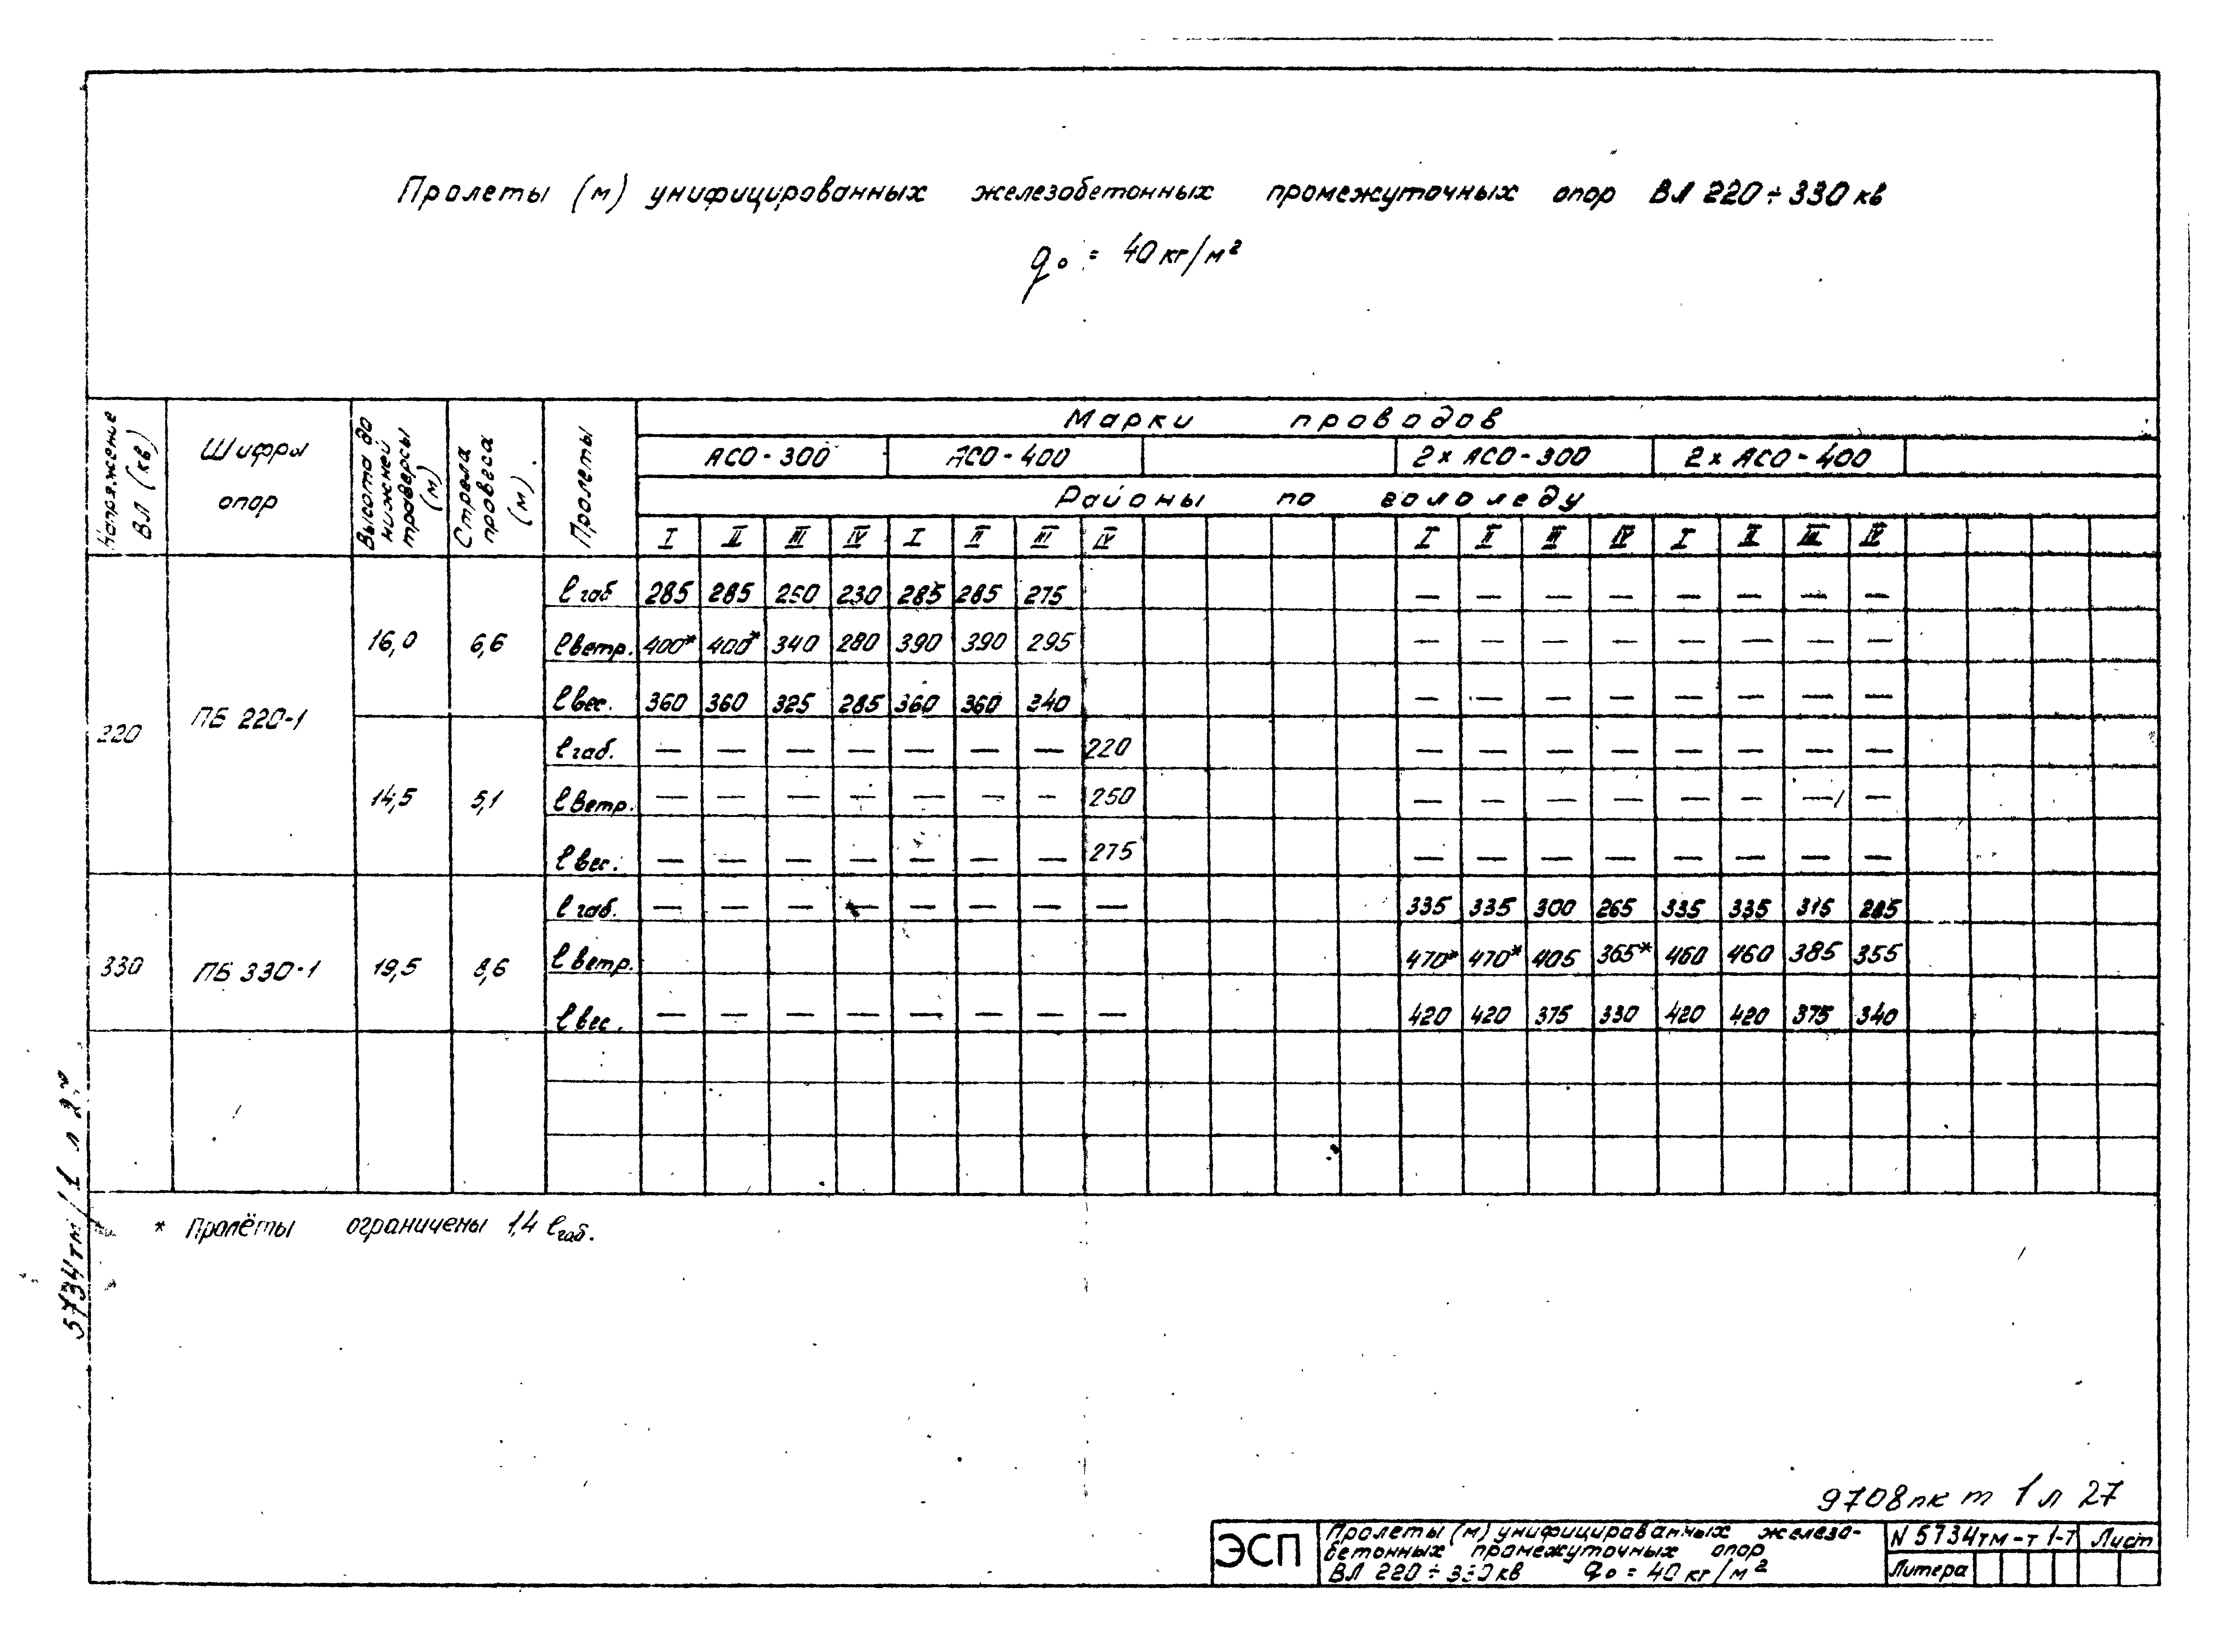 Пролеты (м) унифицированных железобетонных промежуточных опор ВЛ 220÷330 кв
q₀ = 40 кг/м²
Напряжение ВЛ (кв)
Шифры опор
Высота до нижней траверсы (м)
Стрела провеса (м)
Пролеты
Марки проводов
АСО-300 АСО-400 2×АСО-300 2×АСО-400
Районы по гололеду
I II III IV I II III IV I II III IV I II III IV
220 ПБ 220-1
16,0 6,6
ℓгаб 285 285 260 230 285 285 275 — — — — — — — —
ℓветр. 400* 400* 340 280 390 390 295 — — — — — — — —
ℓвес. 360 360 325 285 360 360 340 — — — — — — — —
14,5 5,1
ℓгаб. — — — — — — — 220 — — — — — — — —
ℓветр. — — — — — — — 250 — — — — — — — —
ℓвес. — — — — — — — 275 — — — — — — — —
330 ПБ 330-1 19,5 8,6
ℓгаб. — — — — — — — — 335 335 300 265 335 335 315 285
ℓветр. 470* 470* 405 365* 460 460 385 355
ℓвес. — — — — — — — — 420 420 375 330 420 420 375 340
* Пролёты ограничены 1,4 ℓгаб.
5734тм/1 л
9708пк т 1 л 27
ЭСП
Пролеты (м) унифицированных железо-
бетонных промежуточных опор
ВЛ 220÷330кв q₀ = 40 кг/м²
N 5734тм-т 1-7 Лист
Литера